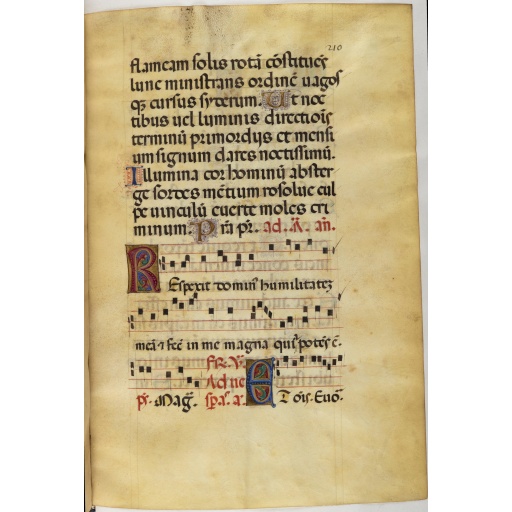 210
flam̄eam solis rotā cōstitueˢ
lune ministrans ordinē uagos
qꝫ cursus syderum. Ut noc
tibus uel luminis directiōiſ
terminū primordijs et mensi
um signum dares notissimū.
Illumina cor hominū abster
ge sordes mētium resolue cul
pe uinculū euerte moles cri
minum. Pr̄a pr̄. ad. M̄. an̄.
Respexit dominˢ humilitatēz
meā ⁊ fēc in me magna qui potēs ē.
Fr. V.
Ad ue
ps. Mag̅. sp̄aˢ. a. E Tōis. Euo̅.